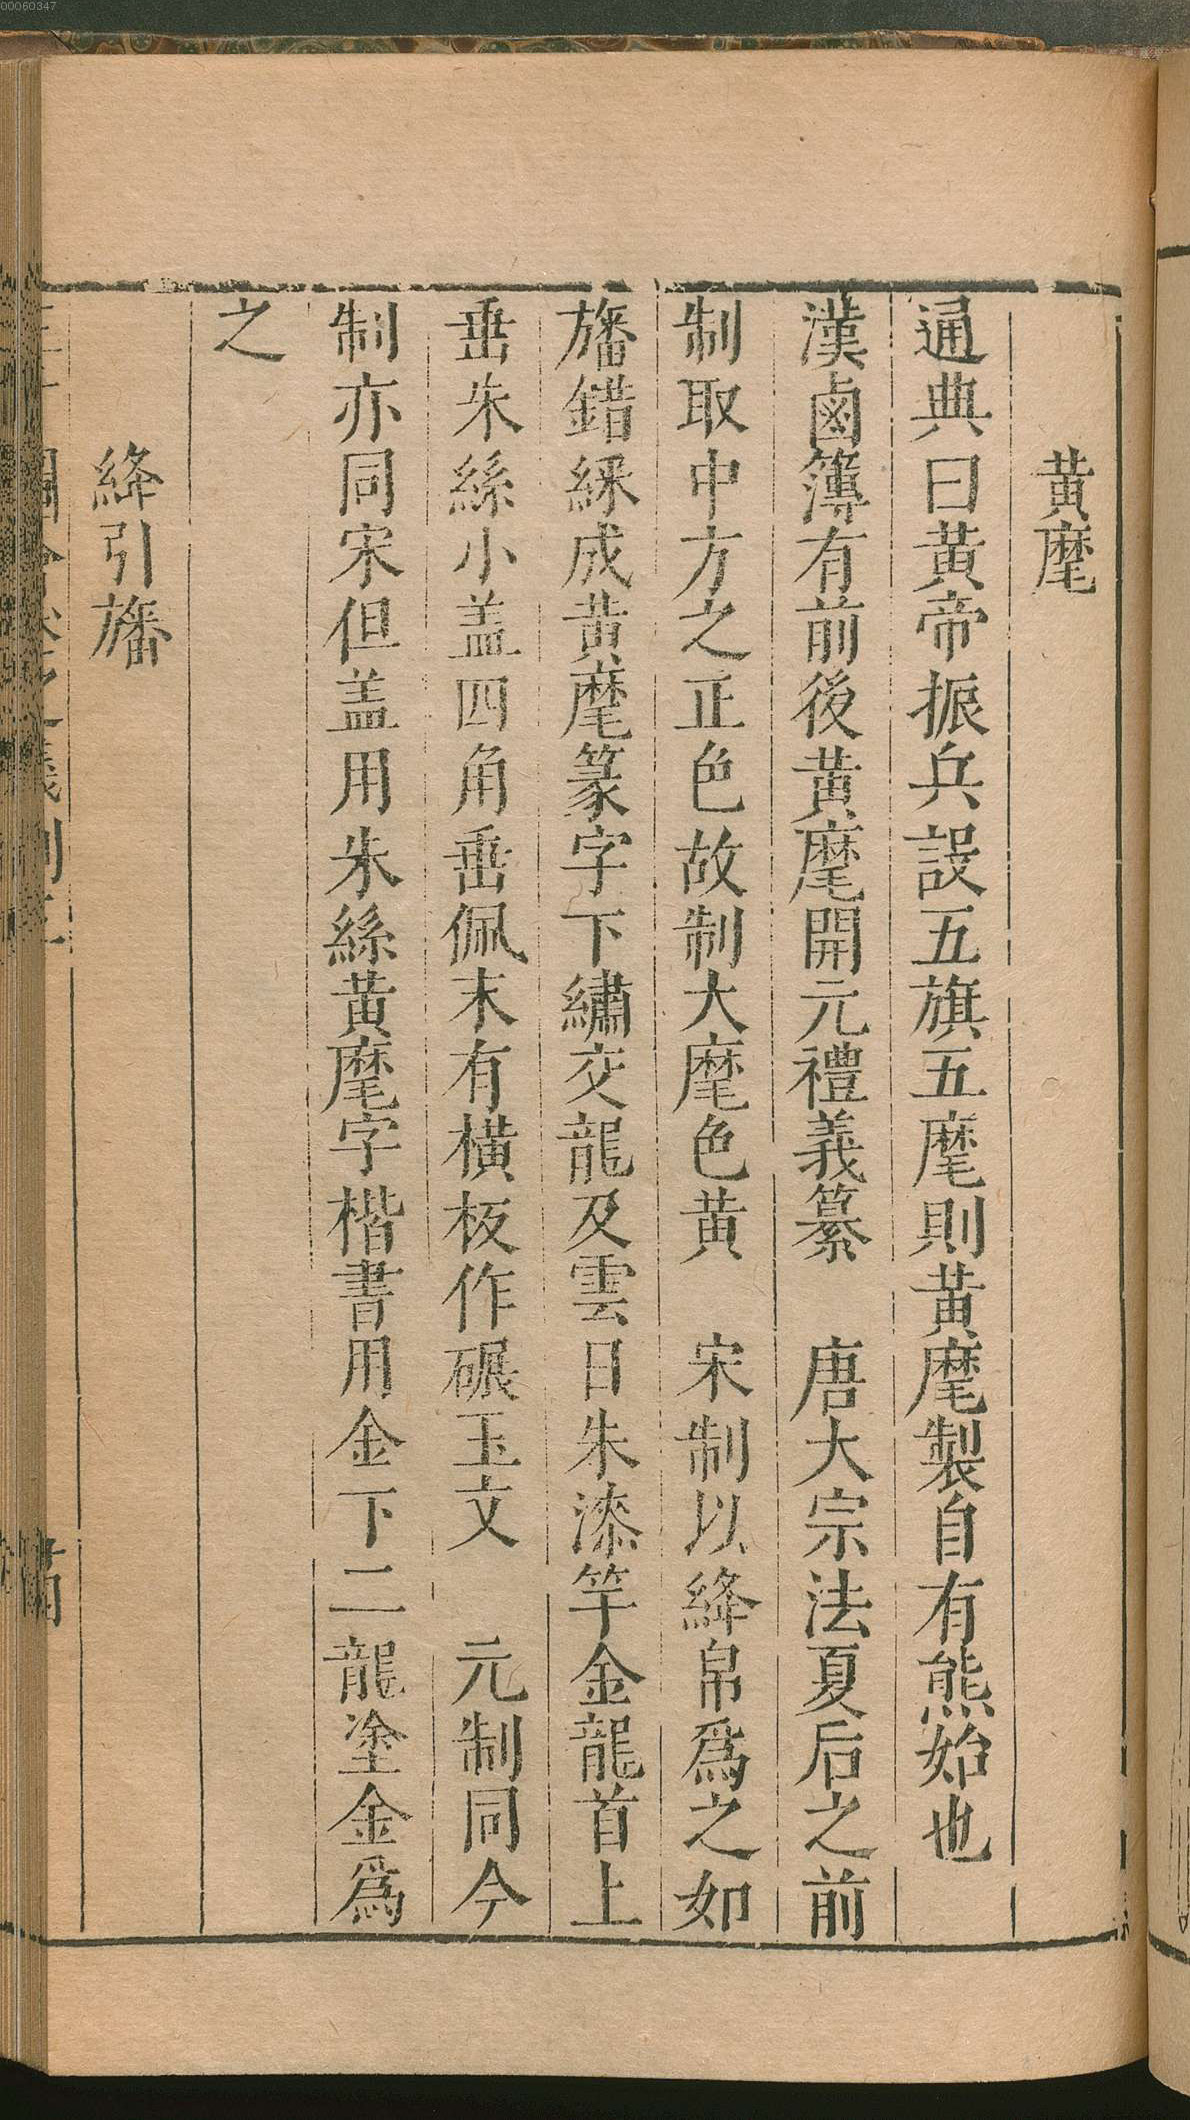 00060347
黄麾
通典曰黄帝振兵設五旗五麾則黄麾製自有熊始也
漢鹵簿有前後黄麾開元禮義纂　唐大宗法夏后之前
制取中方之正色故制大麾色黄　宋制以絳帛爲之如
旛錯綵成黄麾篆字下繡交龍及雲日朱漆竿金龍首上
垂朱絲小盖四角垂佩末有横板作碾玉文　元制同今
制亦同宋但盖用朱絲黄麾字楷書用金下二龍塗金爲
之
絳引旛